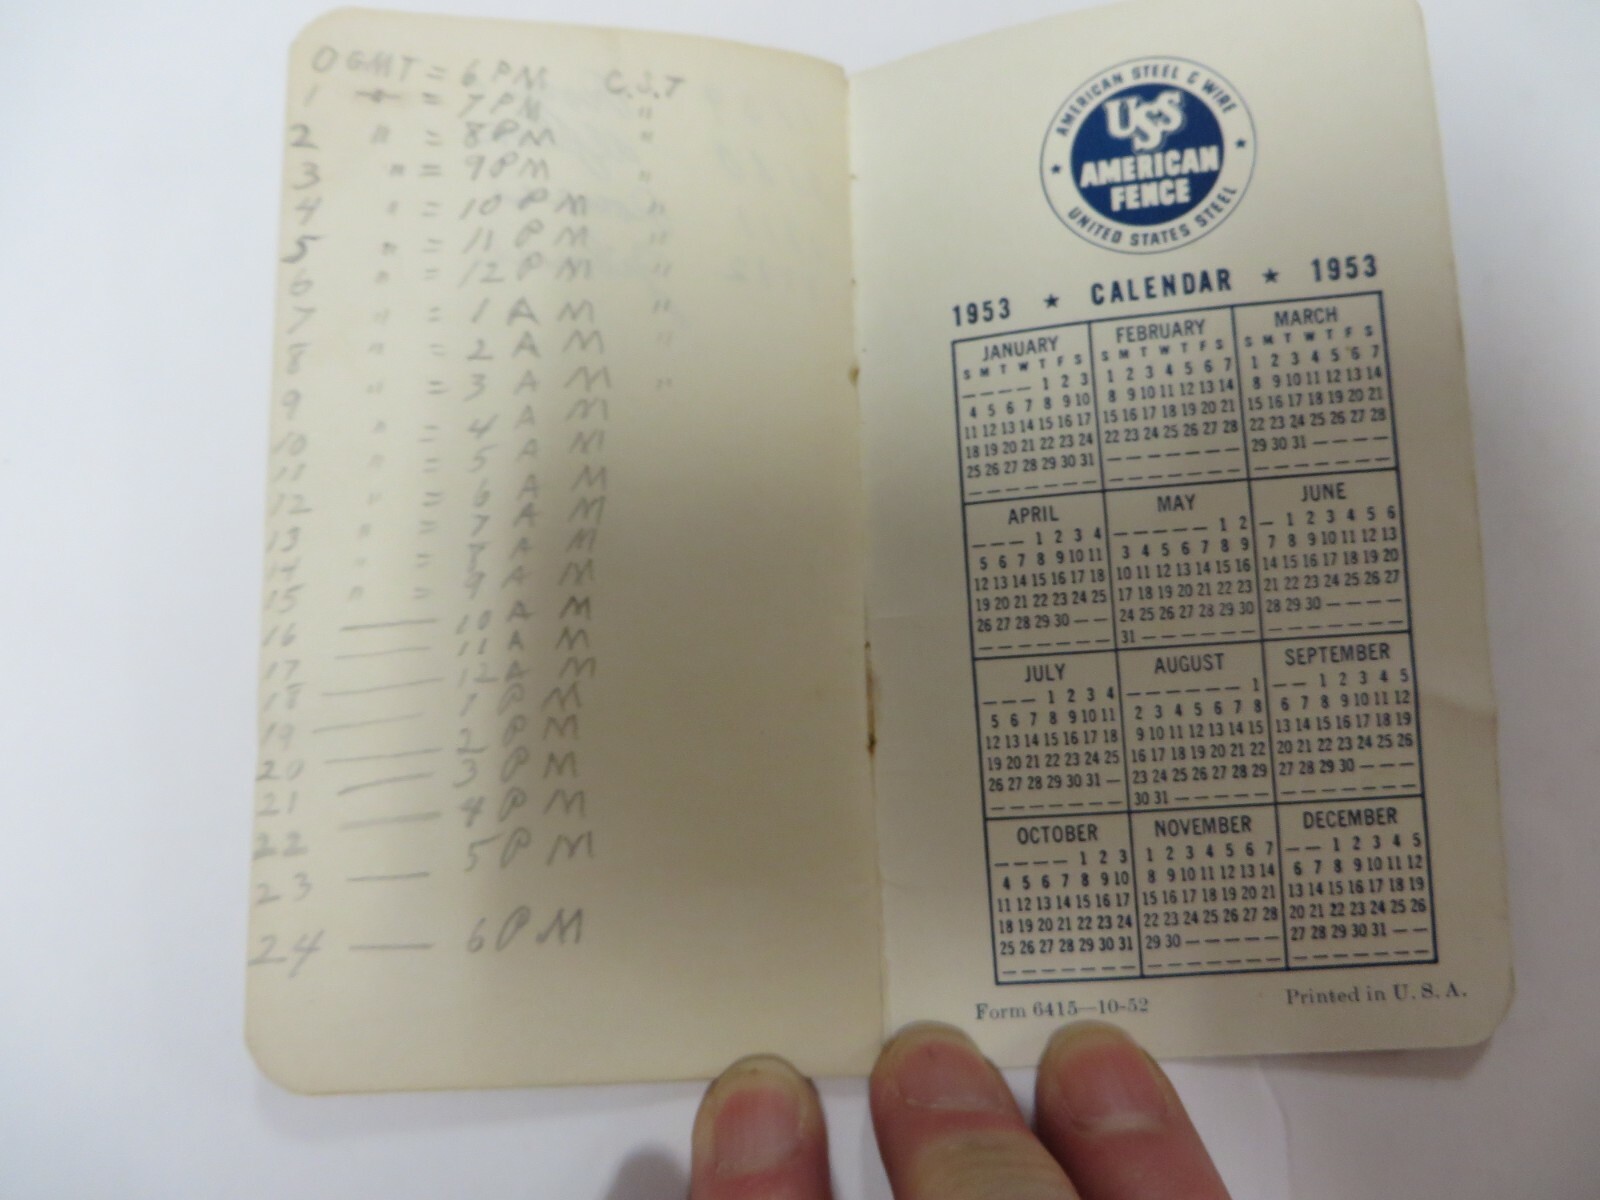 0 GMT = 6 PM C.S.T
1 " = 7 PM "
2 " = 8 PM "
3 " = 9 PM "
4 " = 10 PM "
5 " = 11 PM "
6 " = 12 PM "
7 " = 1 AM "
8 " = 2 AM "
9 " = 3 AM "
10 " = 4 AM
11 " = 5 AM
12 " = 6 AM
13 " = 7 AM
14 " = 8 AM
15 " = 9 AM
16 — 10 AM
17 — 11 AM
18 — 12 AM
19 — 1 PM
20 — 2 PM
21 — 3 PM
22 — 4 PM
23 — 5 PM
24 — 6 PM
AMERICAN STEEL & WIRE
USS
AMERICAN
FENCE
UNITED STATES STEEL
1953 ★ CALENDAR ★ 1953
JANUARY
S M T W T F S
— — — — 1 2 3
4 5 6 7 8 9 10
11 12 13 14 15 16 17
18 19 20 21 22 23 24
25 26 27 28 29 30 31
— — — — — — —
FEBRUARY
S M T W T F S
1 2 3 4 5 6 7
8 9 10 11 12 13 14
15 16 17 18 19 20 21
22 23 24 25 26 27 28
— — — — — — —
— — — — — — —
MARCH
S M T W T F S
1 2 3 4 5 6 7
8 9 10 11 12 13 14
15 16 17 18 19 20 21
22 23 24 25 26 27 28
29 30 31 — — — —
— — — — — — —
APRIL
— — — 1 2 3 4
5 6 7 8 9 10 11
12 13 14 15 16 17 18
19 20 21 22 23 24 25
26 27 28 29 30 — —
— — — — — — —
MAY
— — — — — 1 2
3 4 5 6 7 8 9
10 11 12 13 14 15 16
17 18 19 20 21 22 23
24 25 26 27 28 29 30
31 — — — — — —
JUNE
— 1 2 3 4 5 6
7 8 9 10 11 12 13
14 15 16 17 18 19 20
21 22 23 24 25 26 27
28 29 30 — — — —
— — — — — — —
JULY
— — — 1 2 3 4
5 6 7 8 9 10 11
12 13 14 15 16 17 18
19 20 21 22 23 24 25
26 27 28 29 30 31 —
— — — — — — —
AUGUST
— — — — — — 1
2 3 4 5 6 7 8
9 10 11 12 13 14 15
16 17 18 19 20 21 22
23 24 25 26 27 28 29
30 31 — — — — —
SEPTEMBER
— — 1 2 3 4 5
6 7 8 9 10 11 12
13 14 15 16 17 18 19
20 21 22 23 24 25 26
27 28 29 30 — — —
— — — — — — —
OCTOBER
— — — — 1 2 3
4 5 6 7 8 9 10
11 12 13 14 15 16 17
18 19 20 21 22 23 24
25 26 27 28 29 30 31
— — — — — — —
NOVEMBER
1 2 3 4 5 6 7
8 9 10 11 12 13 14
15 16 17 18 19 20 21
22 23 24 25 26 27 28
29 30 — — — — —
— — — — — — —
DECEMBER
— — 1 2 3 4 5
6 7 8 9 10 11 12
13 14 15 16 17 18 19
20 21 22 23 24 25 26
27 28 29 30 31 — —
— — — — — — —
Form 6415—10-52 Printed in U. S. A.